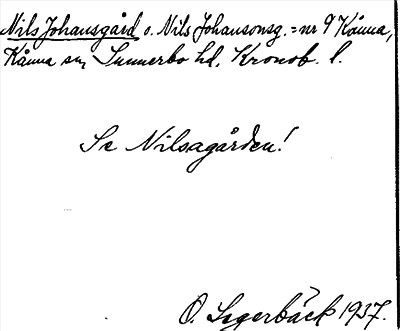 Nils Johansgård o. Nils Johansonsg. = nr 9 Kånna,
Kånna sn, Sunnerbo hd, Kronob. l.
Se Nilsagården!
O. Segerbäck 1937.